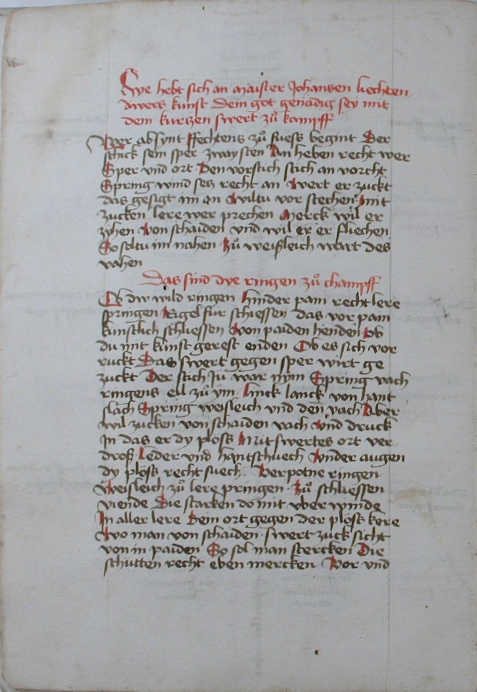 Hye hebt sich an maister Johansen liechten
awers kunst Dem got genädig sey mit
dem kurczen swert zu kampff
Wer absynt ffechtens zu fuess begint Der
schick sein sper zway sten An heben recht wer
Sper vnd ort Den vorstich stich an vorcht
Spring wind secz recht an Wert er zuckt
das gesigt im an Wiltu vor stechen Mit
zucken lere wer prechen Merck wil er
zyhen Von schaiden vnd wil er er fliechen
So soltu im nahen Zu weisleich wart des
vahen
Das sind dye ringen zu champff
Ob dw wild ringen hinder pain recht lere
springen Rigel für schiessen das vor pain
kunstlich schliessen Von paiden henden Ob
du mit kunst gerest enden Ob es sich vor
ruckt Das swert gegen sper wirt ge
zuckt Der stich Ju war nym Spring vach
ringens eil zu ym linck lanck von hant
slach Spring weisleich vnd den vach Aber
wil zucken von schaiden vach vnd druck
In das er dy plöss Mit swertes ort ver
dross Leder vnd hantschuech Vnder augen
dy plöss recht suech Verpotne ringen
Weisleich zu lere pringen Zu schliessen
viende Die starcken do mit vber winde
In aller lere Dem ort gegen der plöss kere
Wo man von schaiden swert zuck sicht
von in paiden So sol man stercken Die
schutten recht eben mercken Vor vnd